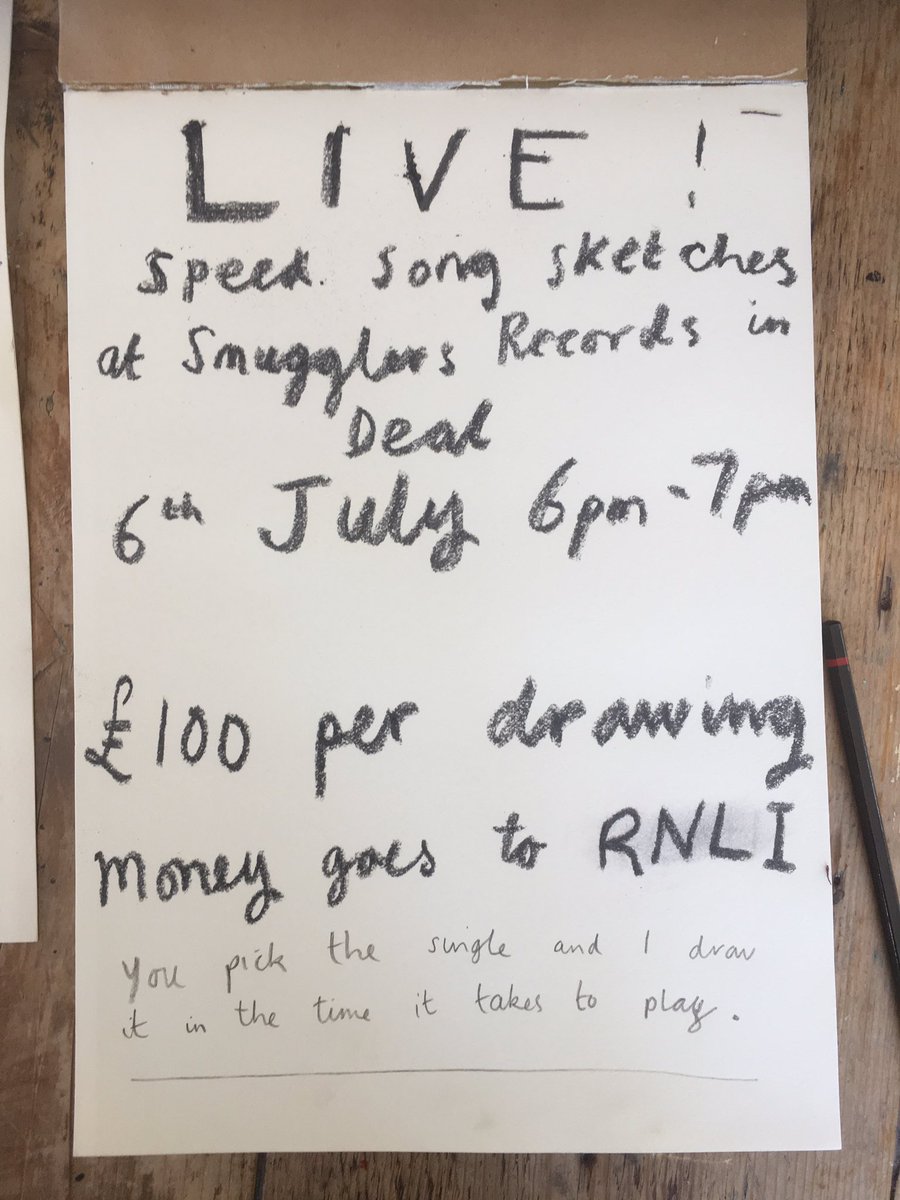 LIVE !
Speed song sketches
at Smugglers Records in
Deal
6th July 6pm - 7pm
£100 per drawing
Money goes to RNLI
You pick the single and I draw
it in the time it takes to play.